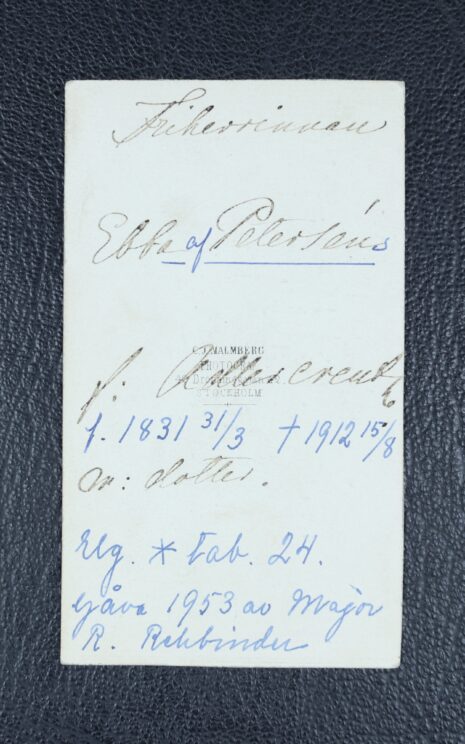 Friherrinnan
Ebba af Peterséns
C.J. MALMBERG
PHOTOGRAF
STOCKHOLM
f. Adlercreutz
f. 1831 31/3 † 1912 15/8
m: dotter.
Elg. * tab. 24.
Gåva 1953 av Major
R. Rehbinder